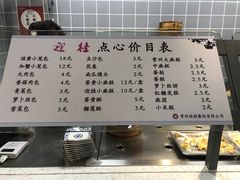 迎桂 点心价目表
蟹黄小笼包 18元
加蟹小笼包 12元
大肉包 4元
香菇肉包 3元
青菜包 3元
萝卜丝包 3元
雪菜包 3元
豆沙包 3元
花卷 2元
南瓜馒头 2元
蛋黄小麻糕 12元/盒
迎桂小麻糕 10元/盒
蛋黄酥 5元
榴莲酥 3元
常州大麻糕 2.5元
中麻糕 2.5元
葱油糕 2元
萝卜丝饼 3元
红糖发糕 2元
麻团 2元
小米糕 2元
常州迎桂餐饮有限公司